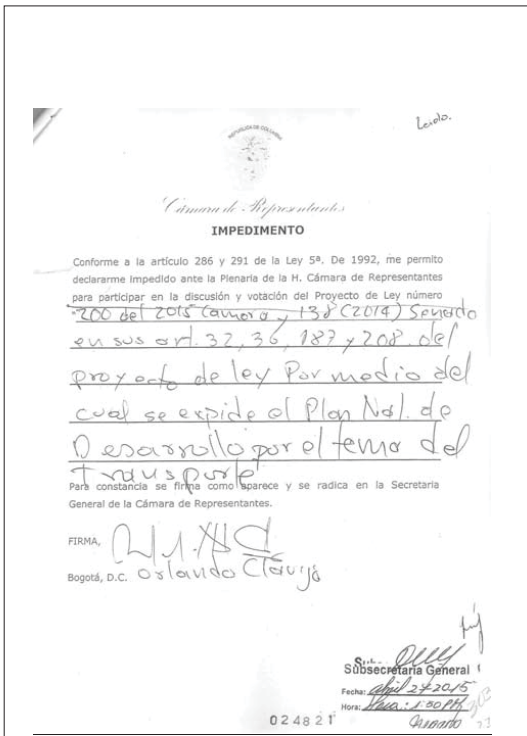 Leido.
REPUBLICA DE COLOMBIA
Cámara de Representantes
IMPEDIMENTO
Conforme a la artículo 286 y 291 de la Ley 5ª. De 1992, me permito
declararme impedido ante la Plenaria de la H. Cámara de Representantes
para participar en la discusión y votación del Proyecto de Ley número
200 del 2015 Camara y 138 (2014) Senado
en sus art. 32, 36, 187 y 208. del
proyecto de ley Por medio del
cual se expide el Plan Nal. de
Desarrollo por el tema del
Transporte
Para constancia se firma como aparece y se radica en la Secretaria
General de la Cámara de Representantes.
FIRMA,
Bogotá, D.C. Orlando Clavijo
Subsecretaría General
Fecha: abril 27 2015
Hora: 1:50 PM
024821